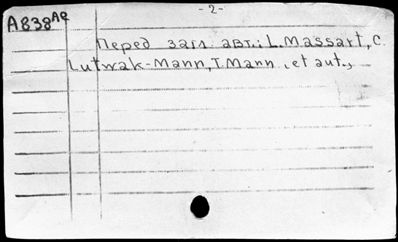 - 2 -
A838Ae
Перед загл. авт.: L. Massart, C.
Lutwak-Mann, T. Mann , et aut.,